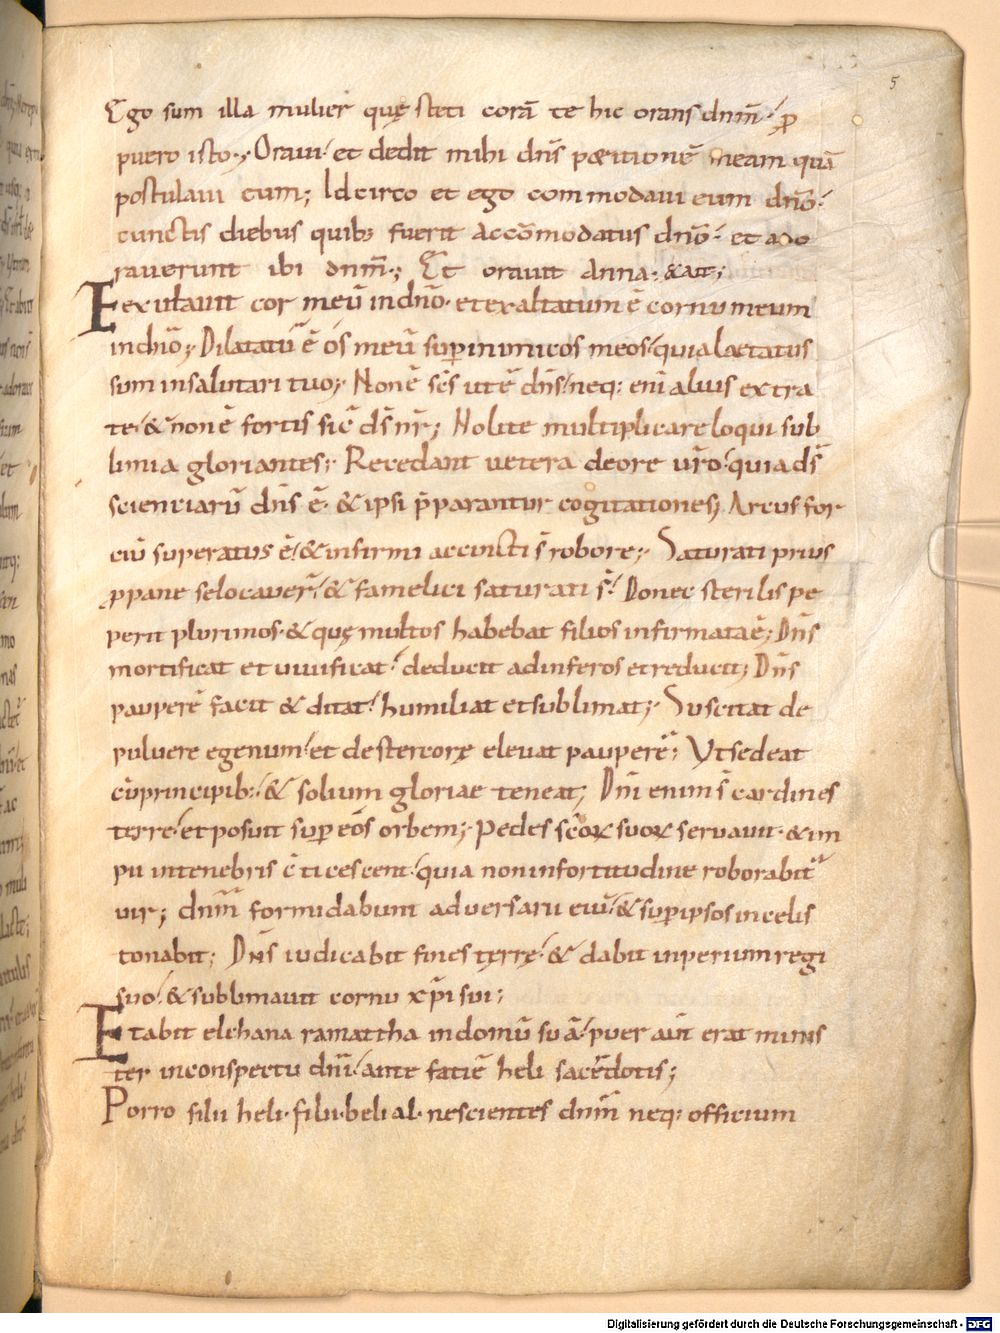 5
Ego sum illa mulier quę steti corā te hic orans dn̄m· ꝓ
puero isto·, Oraui· et dedit mihi dn̄s pætitionē meam quā
postulaui eum; Idcirco et ego commodaui eum dn̄o·
cunctis diebus quib; fuerit accōmodatus dn̄o· et ado
rauerunt ibi dn̄m·; Et orauit anna· & ait;
Exultauit cor meū in dn̄o· et exaltatum ē cornu meum
in dn̄o; Dilatatū ē os meū suꝑ inimicos meos· quia laetatus
sum in salutari tuo; Non ē sc̄s ut ē dn̄s· neq; eni alius extra
te· & non ē fortis sic ds̄ nr̄; Nolite multiplicare loqui sub
limia gloriantes; Recedant uetera de ore ur̄o· quia ds̄
scienciarū dn̄s ē· & ipsi p̄parantur cogitationes; Arcus for·
ciū superatus ē· & infirmi accincti s̄ robore; Saturati prius
ꝓ pane se locauer̄· & famelici saturati s̄· Donec sterilis pe
perit plurimos· & quę multos habebat filios infirmata ē; Dn̄s
mortificat et uiuificat· deducit ad inferos et reducit; Dn̄s
pauperē facit & ditat· humiliat et sublimat; Suscitat de
puluere egenum· et de stercorę eleuat pauperē; Ut sedeat
cū principib;· & solium gloriae teneat; Dn̄i enim s̄ cardines
terre· et posuit suꝑ eos orbem; Pedes sc̄oꝝ suoꝝ seruauit· & im
pii in tenebris c̄ticescent· quia non in fortitudine roborabit᷑
uir; dn̄m formidabunt aduersarii eiu᷒· & suꝑ ipsos in celis
tonabit; Dn̄s iudicabit fines tęrrę· & dabit inperium regi
suo· & sublimauit cornu xp̄i sui;
Et abiit elchana ramattha in domū suā· puer aut̄ erat minis
ter in conspectu dn̄i· ante faciē heli sacerdotis;
Porro filii heli· filii belial· nescientes dn̄m neq; officium
Digitalisierung gefördert durch die Deutsche Forschungsgemeinschaft - DFG